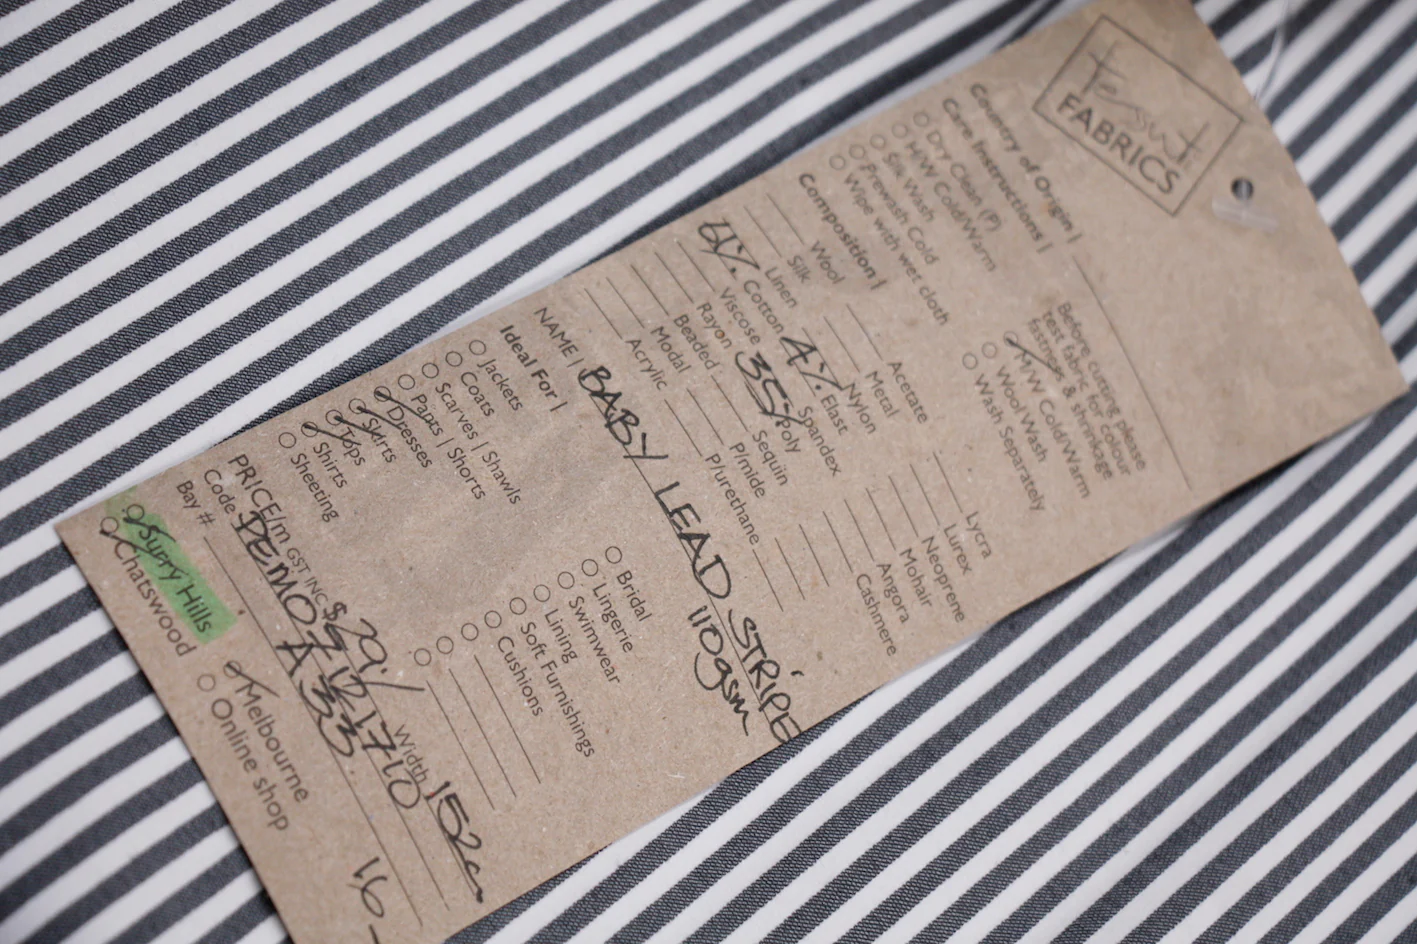 Tessuti
FABRICS
Country of Origin |
Care Instructions |
Dry Clean (P)
H/W Cold/Warm
Silk Wash
Prewash Cold
Wipe with wet cloth
Before cutting please
test fabric for colour
fastness & shrinkage
M/W Cold/Warm
Wool Wash
Wash Separately
Composition |
Wool Acetate Lycra
Silk Metal Lurex
Linen Nylon Neoprene
61% Cotton 4% Elast Mohair
Viscose Spandex Angora
Rayon 35% Poly Cashmere
Beaded Sequin
Modal P/mide
Acrylic P/urethane
NAME | BABY LEAD STRIPE
110gsm
Ideal For |
Jackets
Coats
Scarves | Shawls
Pants | Shorts
Dresses
Skirts
Tops
Shirts
Sheeting
Bridal
Lingerie
Swimwear
Lining
Soft Furnishings
Cushions
PRICE/m GST INC Width 152cm
Code
Bay # A33
Surry Hills
Chatswood
Melbourne
Online shop